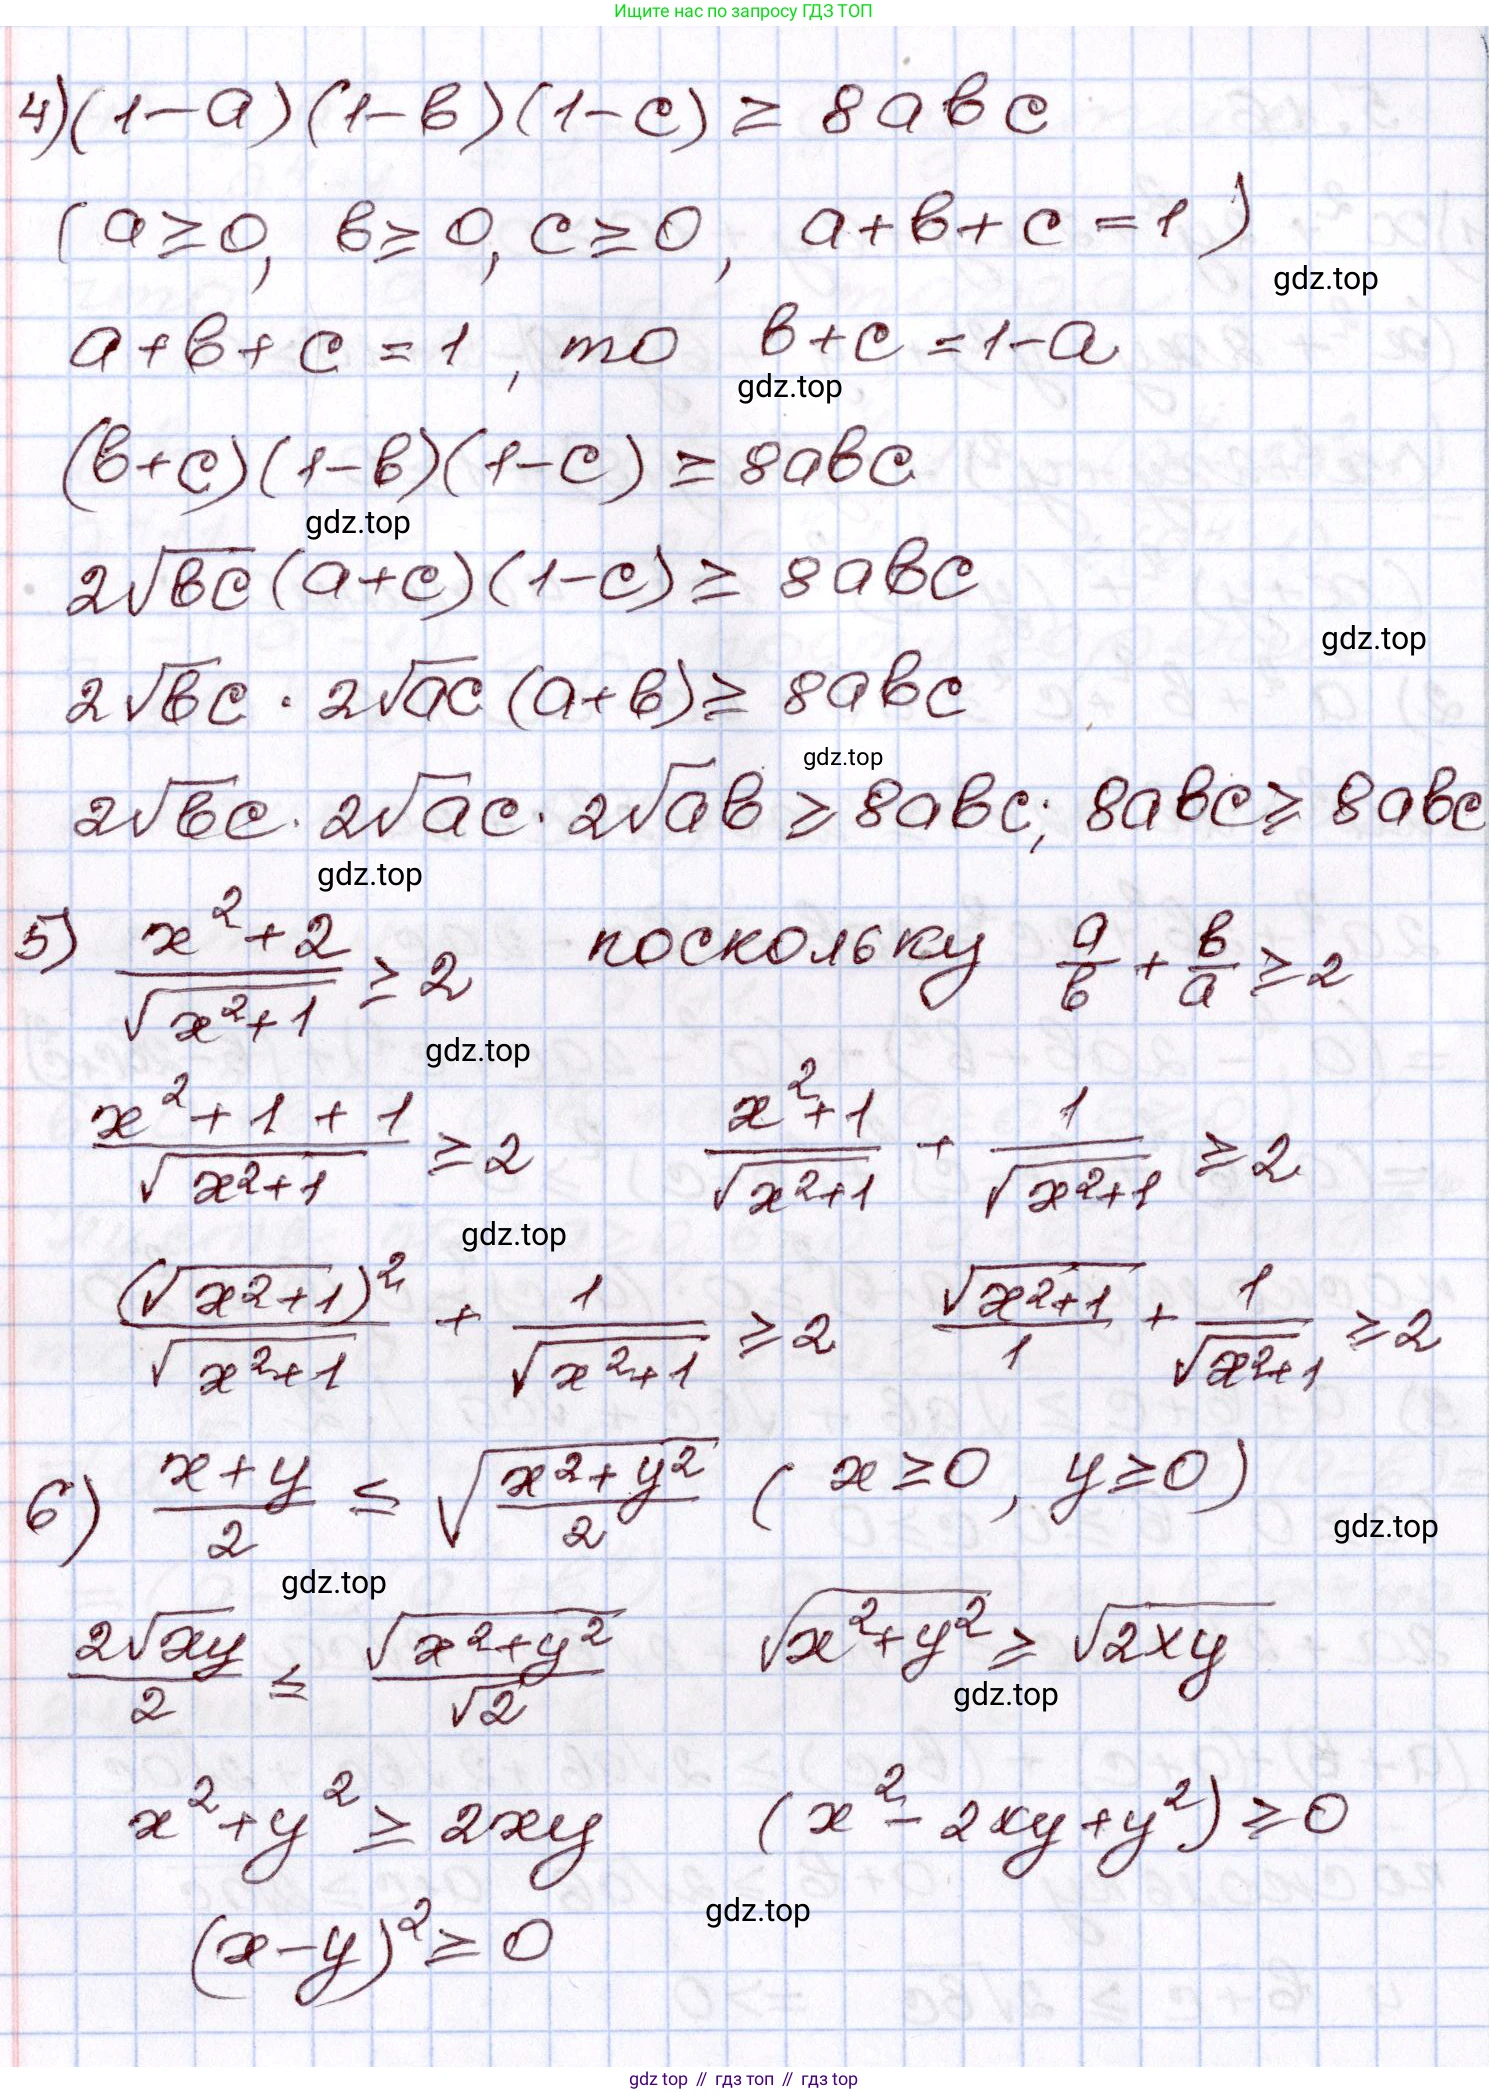 Ищите нас по запросу ГДЗ ТОП
4) (1-a)(1-b)(1-c) ≥ 8abc
(a≥0, b≥0, c≥0, a+b+c=1)
gdz.top
a+b+c=1, то b+c=1-a
gdz.top
(b+c)(1-b)(1-c) ≥ 8abc
gdz.top
2√bc(a+c)(1-c) ≥ 8abc
gdz.top
2√bc · 2√ac(a+b) ≥ 8abc
gdz.top
2√bc · 2√ac · 2√ab ≥ 8abc; 8abc ≥ 8abc
gdz.top
5) (x²+2)/√(x²+1) ≥ 2 поскольку a/b + b/a ≥ 2
gdz.top
(x²+1+1)/√(x²+1) ≥ 2 (x²+1)/√(x²+1) + 1/√(x²+1) ≥ 2
gdz.top
(√(x²+1))²/√(x²+1) + 1/√(x²+1) ≥ 2 √(x²+1)/1 + 1/√(x²+1) ≥ 2
6) (x+y)/2 ≤ √((x²+y²)/2) (x≥0, y≥0)
gdz.top
gdz.top
2√xy/2 ≤ √(x²+y²)/√2 √(x²+y²) ≥ √2xy
gdz.top
x²+y² ≥ 2xy (x²-2xy+y²) ≥ 0
gdz.top
(x-y)² ≥ 0
gdz top // гдз топ // гдз top